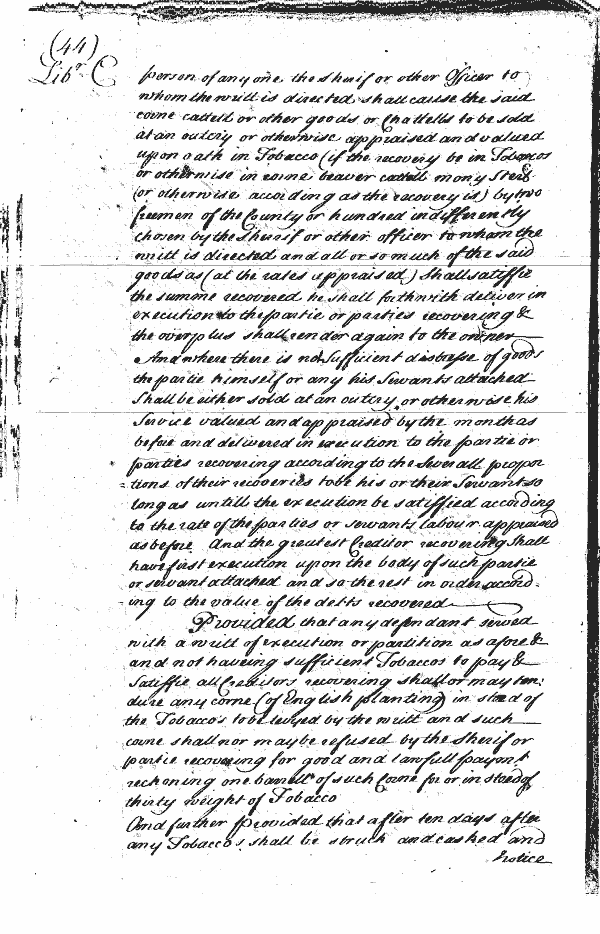 (44)
Libr C
person of any one the sherif or other Officer to
whom the writt is directed shall causse the said
corne cattell or other goods or Chattells to be sold
at an outcry or otherwise appraised and valued
upon oath in Tobacco (if the recovery be in Tobaccos
or otherwise in corne beaver cattell mony Sterl
(or otherwise according as the recovery is) by two
freemen of the County or hundred indifferently
chosen by the Sherif or other officer to whom the
writt is directed and all or so much of the said
goods as (at the rates appraised) Shall satiffie
the summe recovered he shall forthwith deliver in
execution to the partie or parties recovering &
the overplus shall render again to the owner
And where there is no Sufficient distresse of goods
the partie himself or any his Servants attached
Shall be either sold at an outcry or otherwise his
Service valued and appraised by the month as
before and delivered in execution to the partie or
parties recovering according to the Severall propor
tions of their recoveries to be his or their Servant so
long as untill the execution be satiffied according
to the rate of the parties or servants labour appraised
as before And the greatest Creditor recovering Shall
have first execution upon the body of such partie
or servant attached and so the rest in order accord-
ing to the value of the debts recovered
Provided that any defendant served
with a writt of execution or partition as afore &
and not haveing sufficient Tobaccos to pay &
Satiffie all Creditors recovering shall or may ten:
dure any corne (of English planting) in stead of
the Tobaccos to be levyed by the writt and such
corne shall nor may be refused by the Sherif or
partie recovering for good and lawfull paymt
reckoning one barrell of such Corne for or in stead of
thirty weight of Tobacco
And further provided that after ten days after
any Tobaccos shall be struck and casked and
Notice